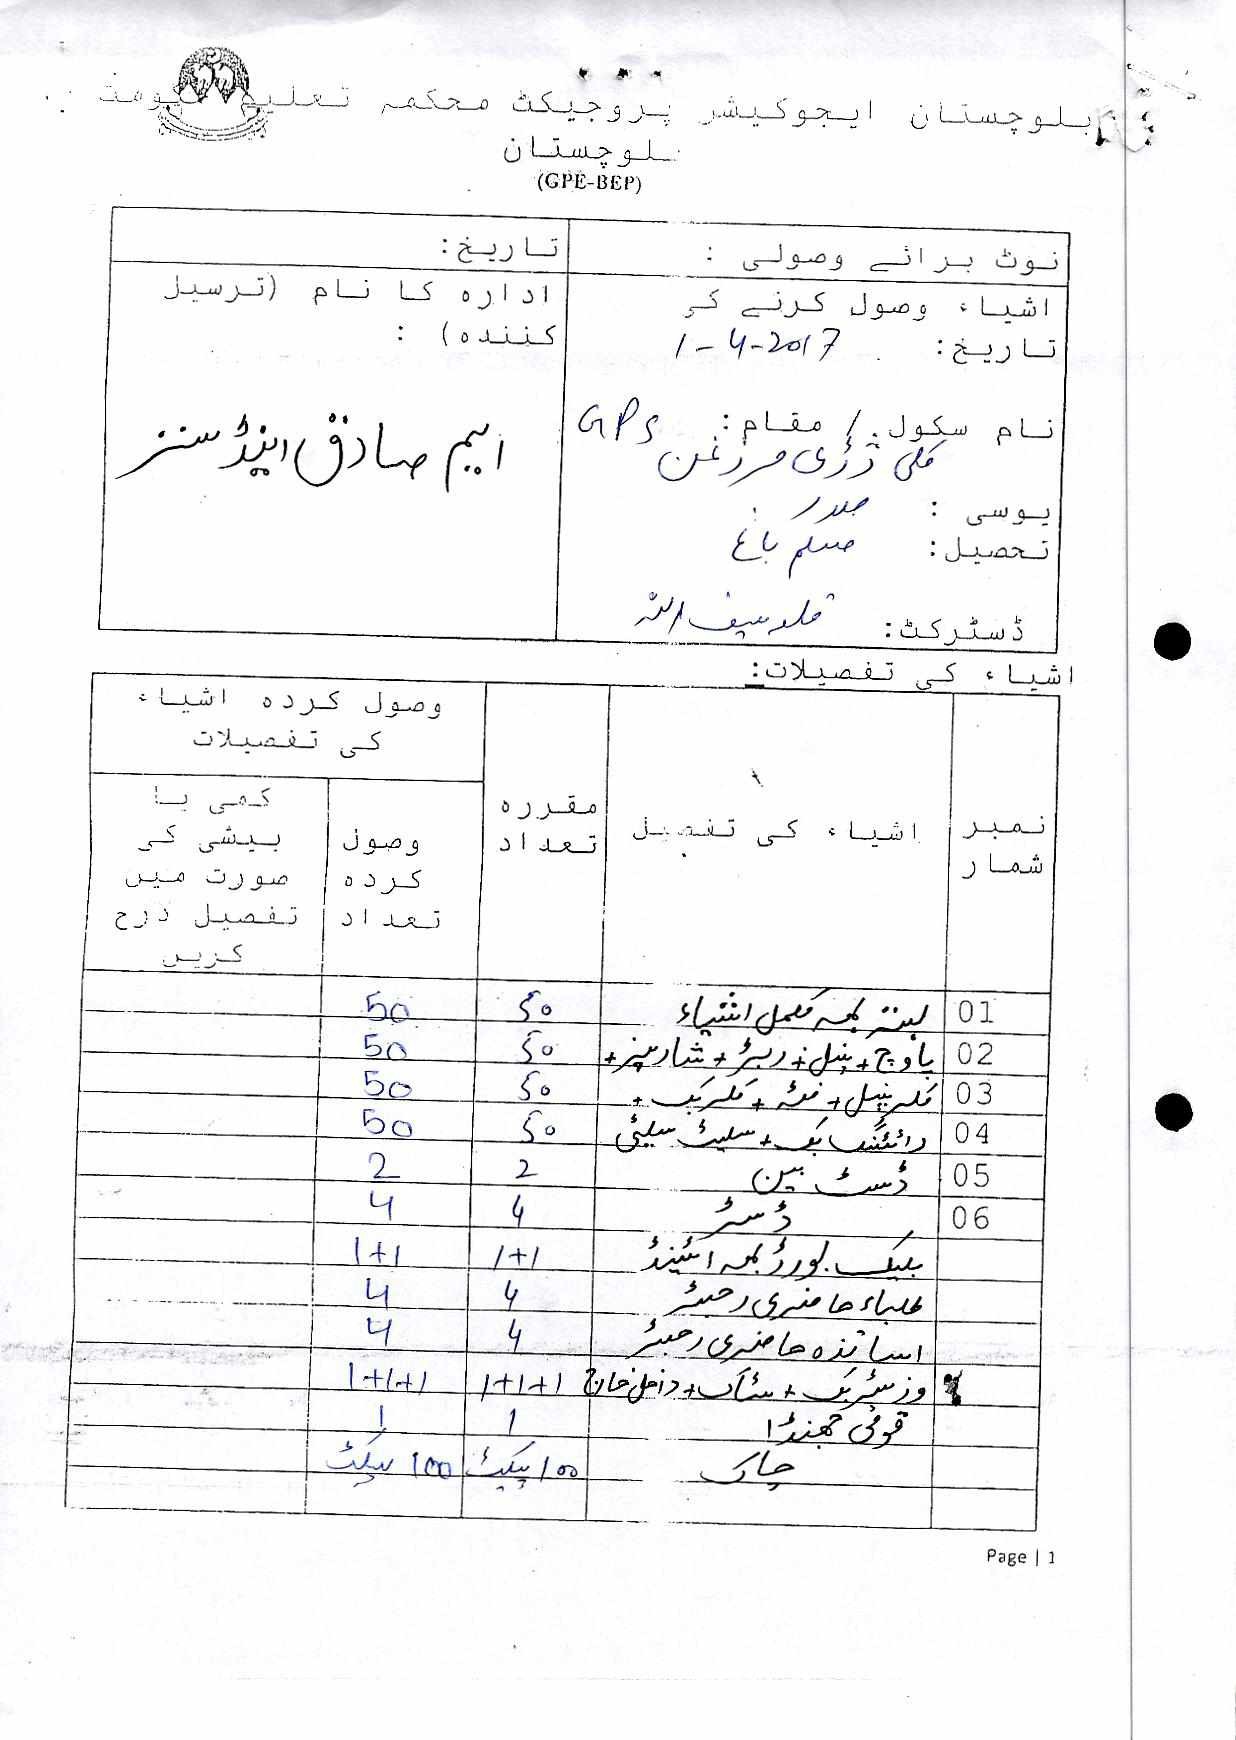 بلوچستان ایجوکیشن پروجیکٹ محکمہ تعلیم حکومت
بلوچستان
(GPE-BEP)
نوٹ برائے وصولی :
تاریخ:
اشیاء وصول کرنے کی
تاریخ: 1-4-2017
ادارہ کا نام (ترسیل
کنندہ) :
ایم صادق اینڈ سنز
نام سکول / مقام: GPS
کلی
یوسی :
تحصیل: مسلم باغ
ڈسٹرکٹ: قلعہ سیف اللہ
اشیاء کی تفصیلات:
نمبر شمار
اشیاء کی تفصیل
مقررہ تعداد
وصول کردہ اشیاء کی تفصیلات
وصول کردہ تعداد
کمی یا بیشی کی صورت میں تفصیل درج کریں
01 بمعہ مکمل اشیاء ۵۰ 50
02 + پنسل + ربڑ + شارپنر + ۵۰ 50
03 کلر پنسل + فٹہ + کلر بک + ۵۰ 50
04 رائٹنگ بک + سلیٹ سلیٹی ۵۰ 50
05 ڈسٹ بین 2 2
06 ڈسٹر 4 4
بلیک بورڈ بمعہ اسٹینڈ 1+1 1+1
طلباء حاضری رجسٹر 4 4
اساتذہ حاضری رجسٹر 4 4
وزیٹر بک + سٹاک + داخل خارج 1+1+1 1+1+1
قومی جھنڈا 1 1
چاک ۱۰۰ پیکٹ 100 پیکٹ
Page | 1